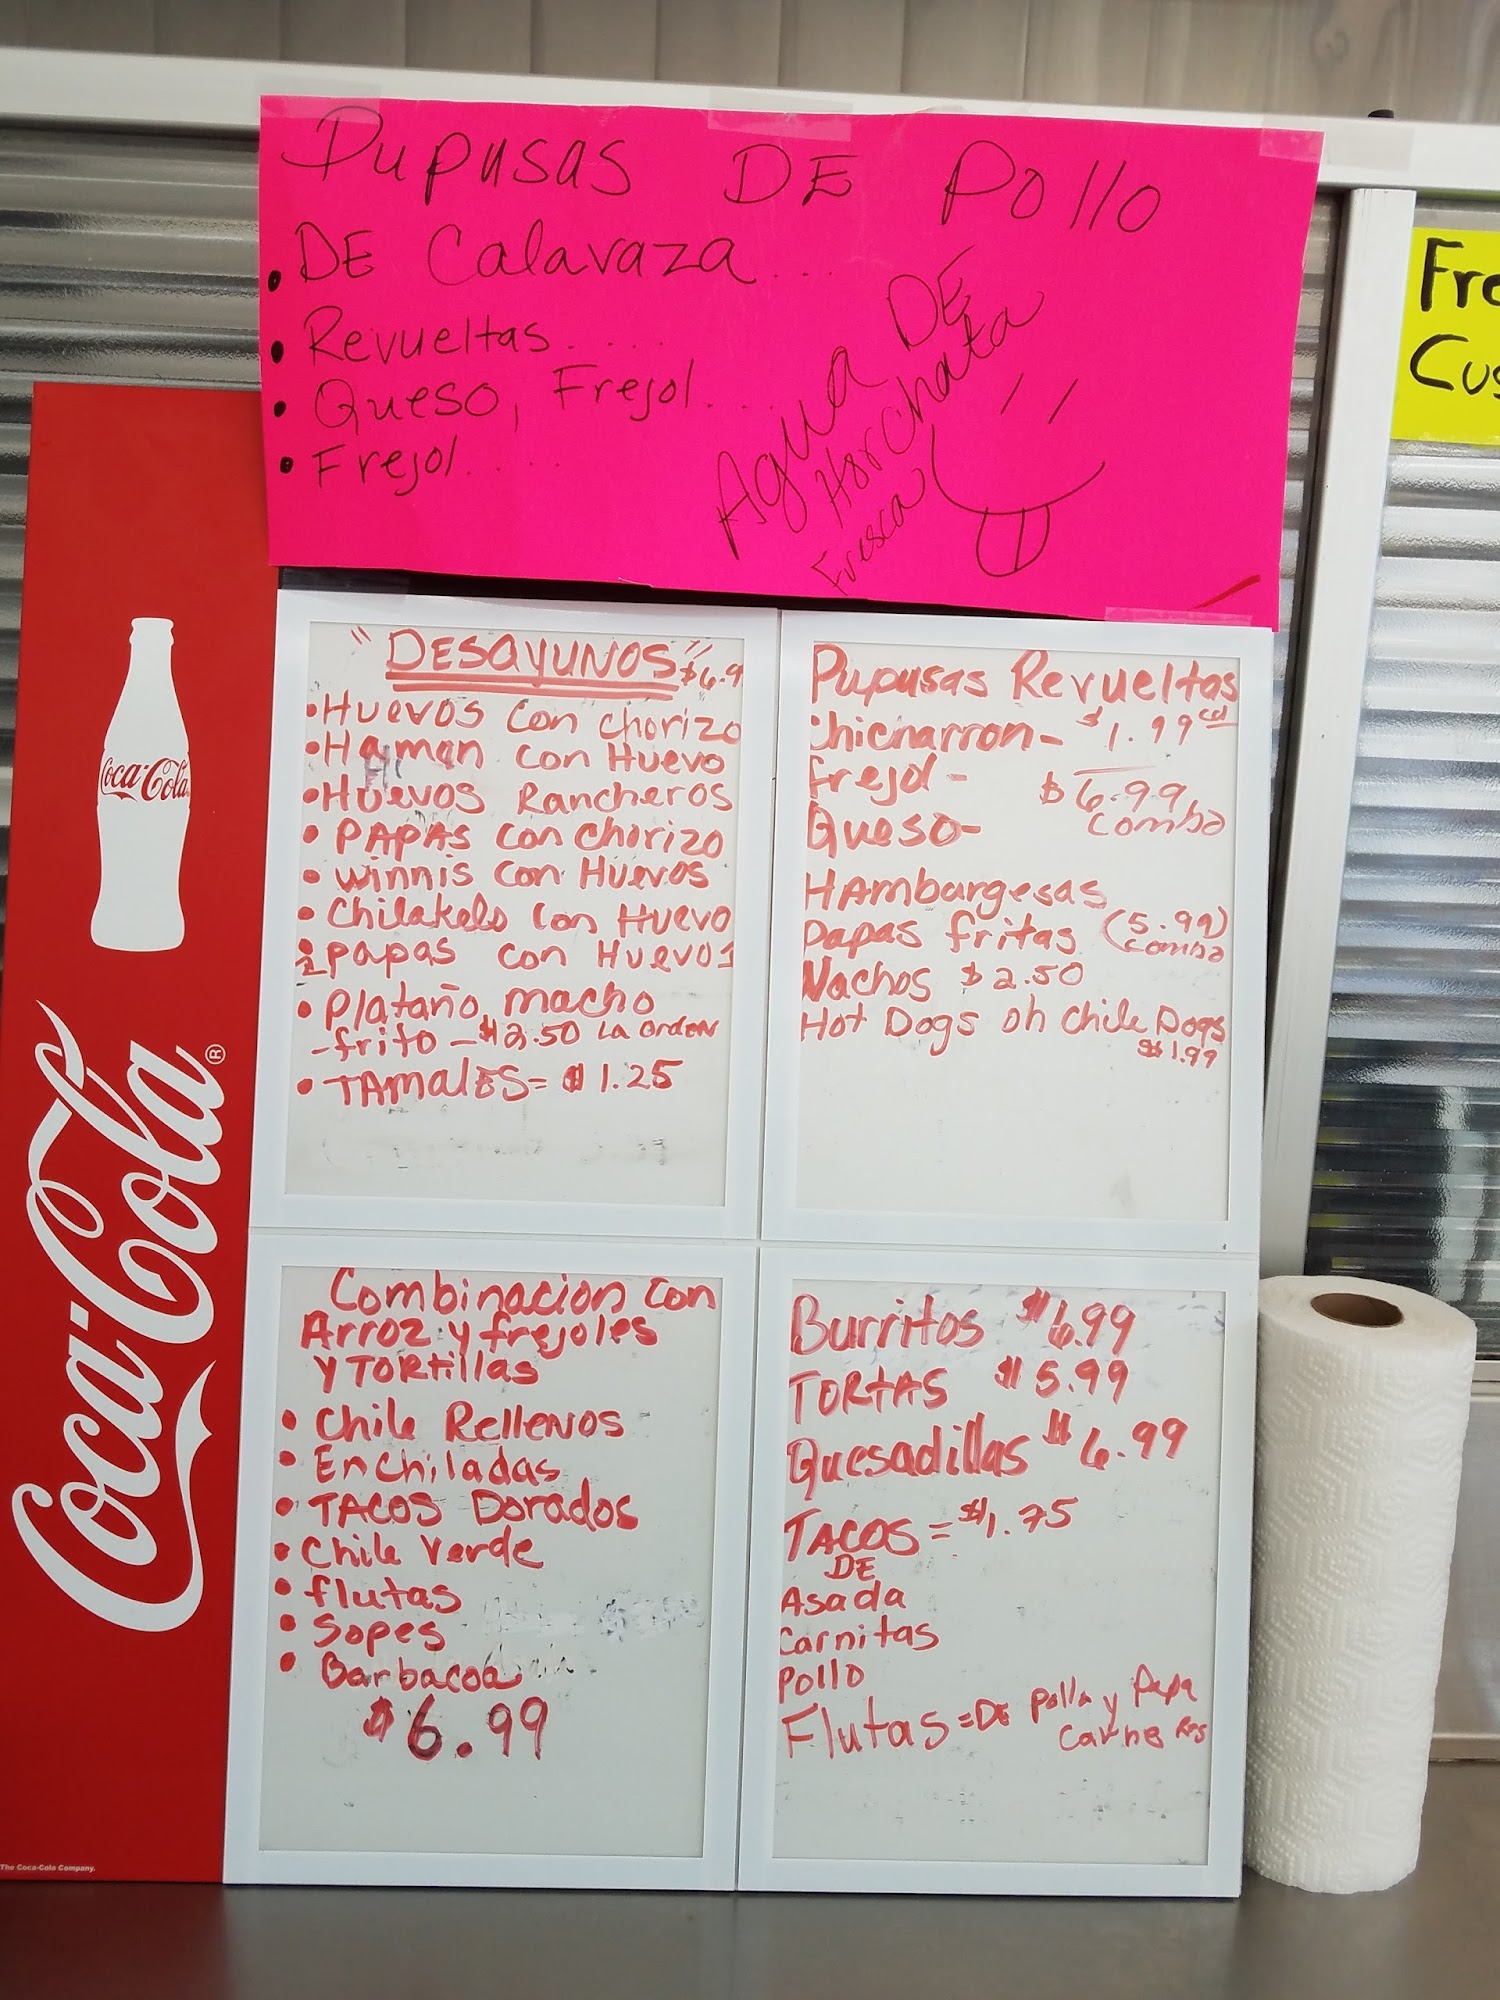 Pupusas DE Pollo
• DE Calavaza...
• Revueltas....
• Queso, Frejol....
• Frejol.....
Agua DE
Horchata
Fresca
Fre
Cus
"DESAYUNOS" $6.9
• HUEVOS con chorizo
• Hamon con Huevo
• HUEVOS Rancheros
• PAPAS con chorizo
• winnis con HUEVOS
• Chilakels con Huevo
papas con HUEVOS
• Plataño macho
-frito - $2.50 La orden
• TAmalES = $1.25
Pupusas Revueltas
Chicharron - $1.99 cd
frejol - $6.99
Queso- combo
HAmburgesas
Papas fritas (5.99)
combo
Nachos $2.50
Hot Dogs oh chile Dogs
$1.99
Combinacion con
Arroz y frejoles
y TORtillas
• Chile RellENOS
• Enchiladas
• TACOS Dorados
• Chile Verde
• flutas
• Sopes
• Barbacoa
$6.99
Burritos $6.99
TORTAS $5.99
Quesadillas $6.99
TACOS = $1.75
DE
Asada
Carnitas
Pollo
Flutas = DE pollo y Papa
Carne Res
Coca-Cola
Coca-Cola®
The Coca-Cola Company.